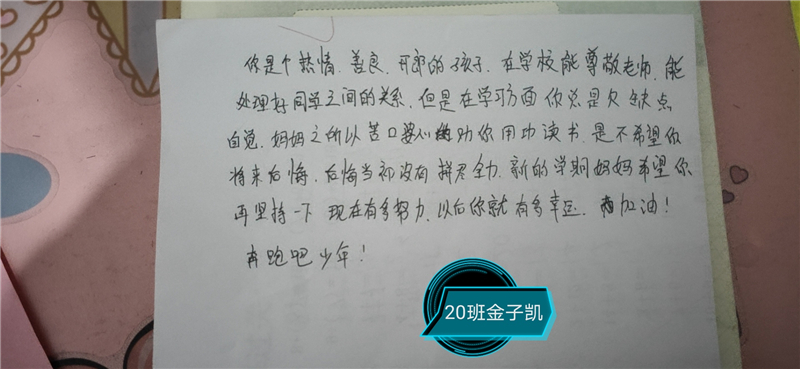 你是个热情、善良、开郎的孩子、在学校能尊敬老师、能
处理好同学之间的关系、但是在学习方面你总是欠缺点
自觉、妈妈之所以苦口婆心的劝你用功读书、是不希望你
将来后悔、后悔当初没有拼尽全力、新的学期妈妈希望你
再坚持一下 现在有多努力、以后你就有多幸运、加油！
奔跑吧少年！
20班金子凯